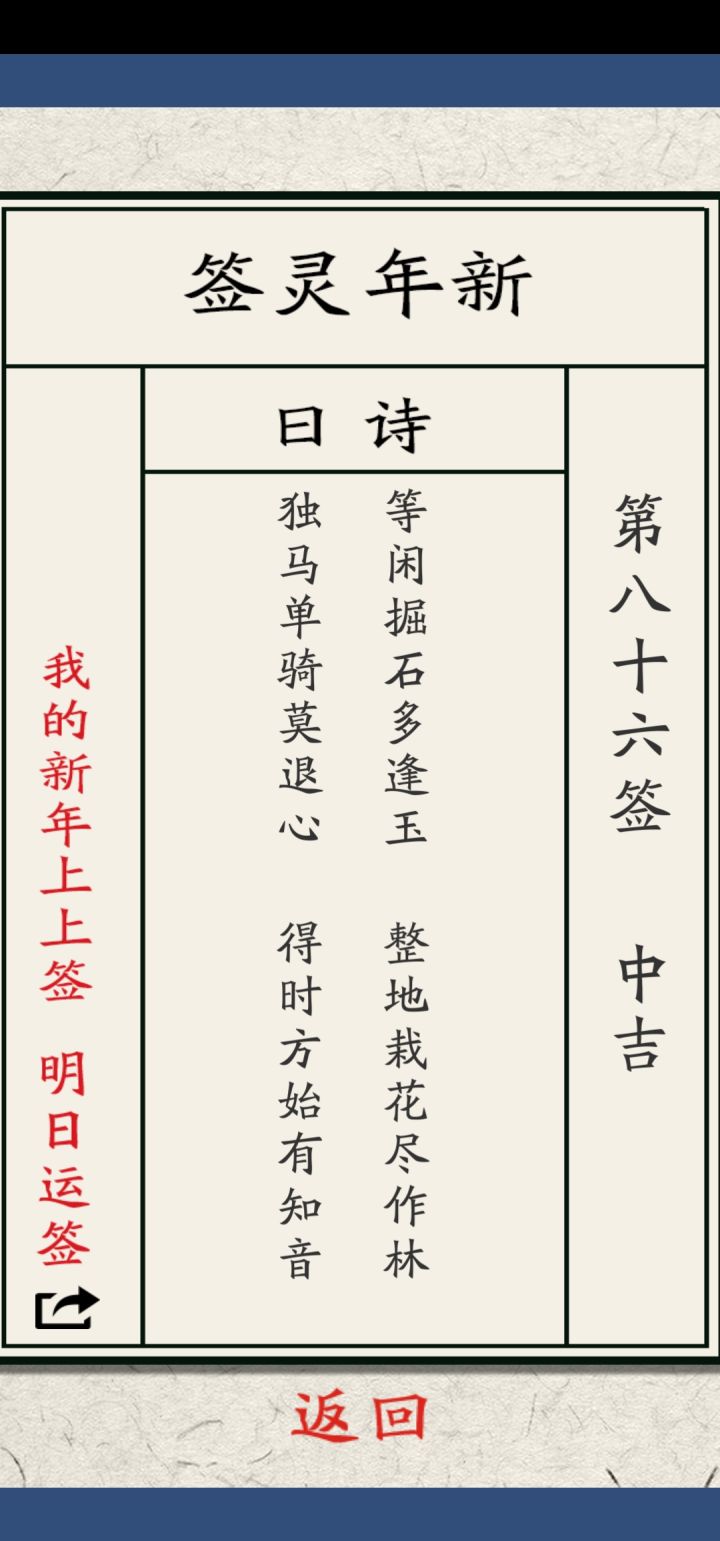 新年灵签
第八十六签 中吉
诗曰
等闲掘石多逢玉 整地栽花尽作林
独马单骑莫退心 得时方始有知音
我的新年上上签 明日运签
返回